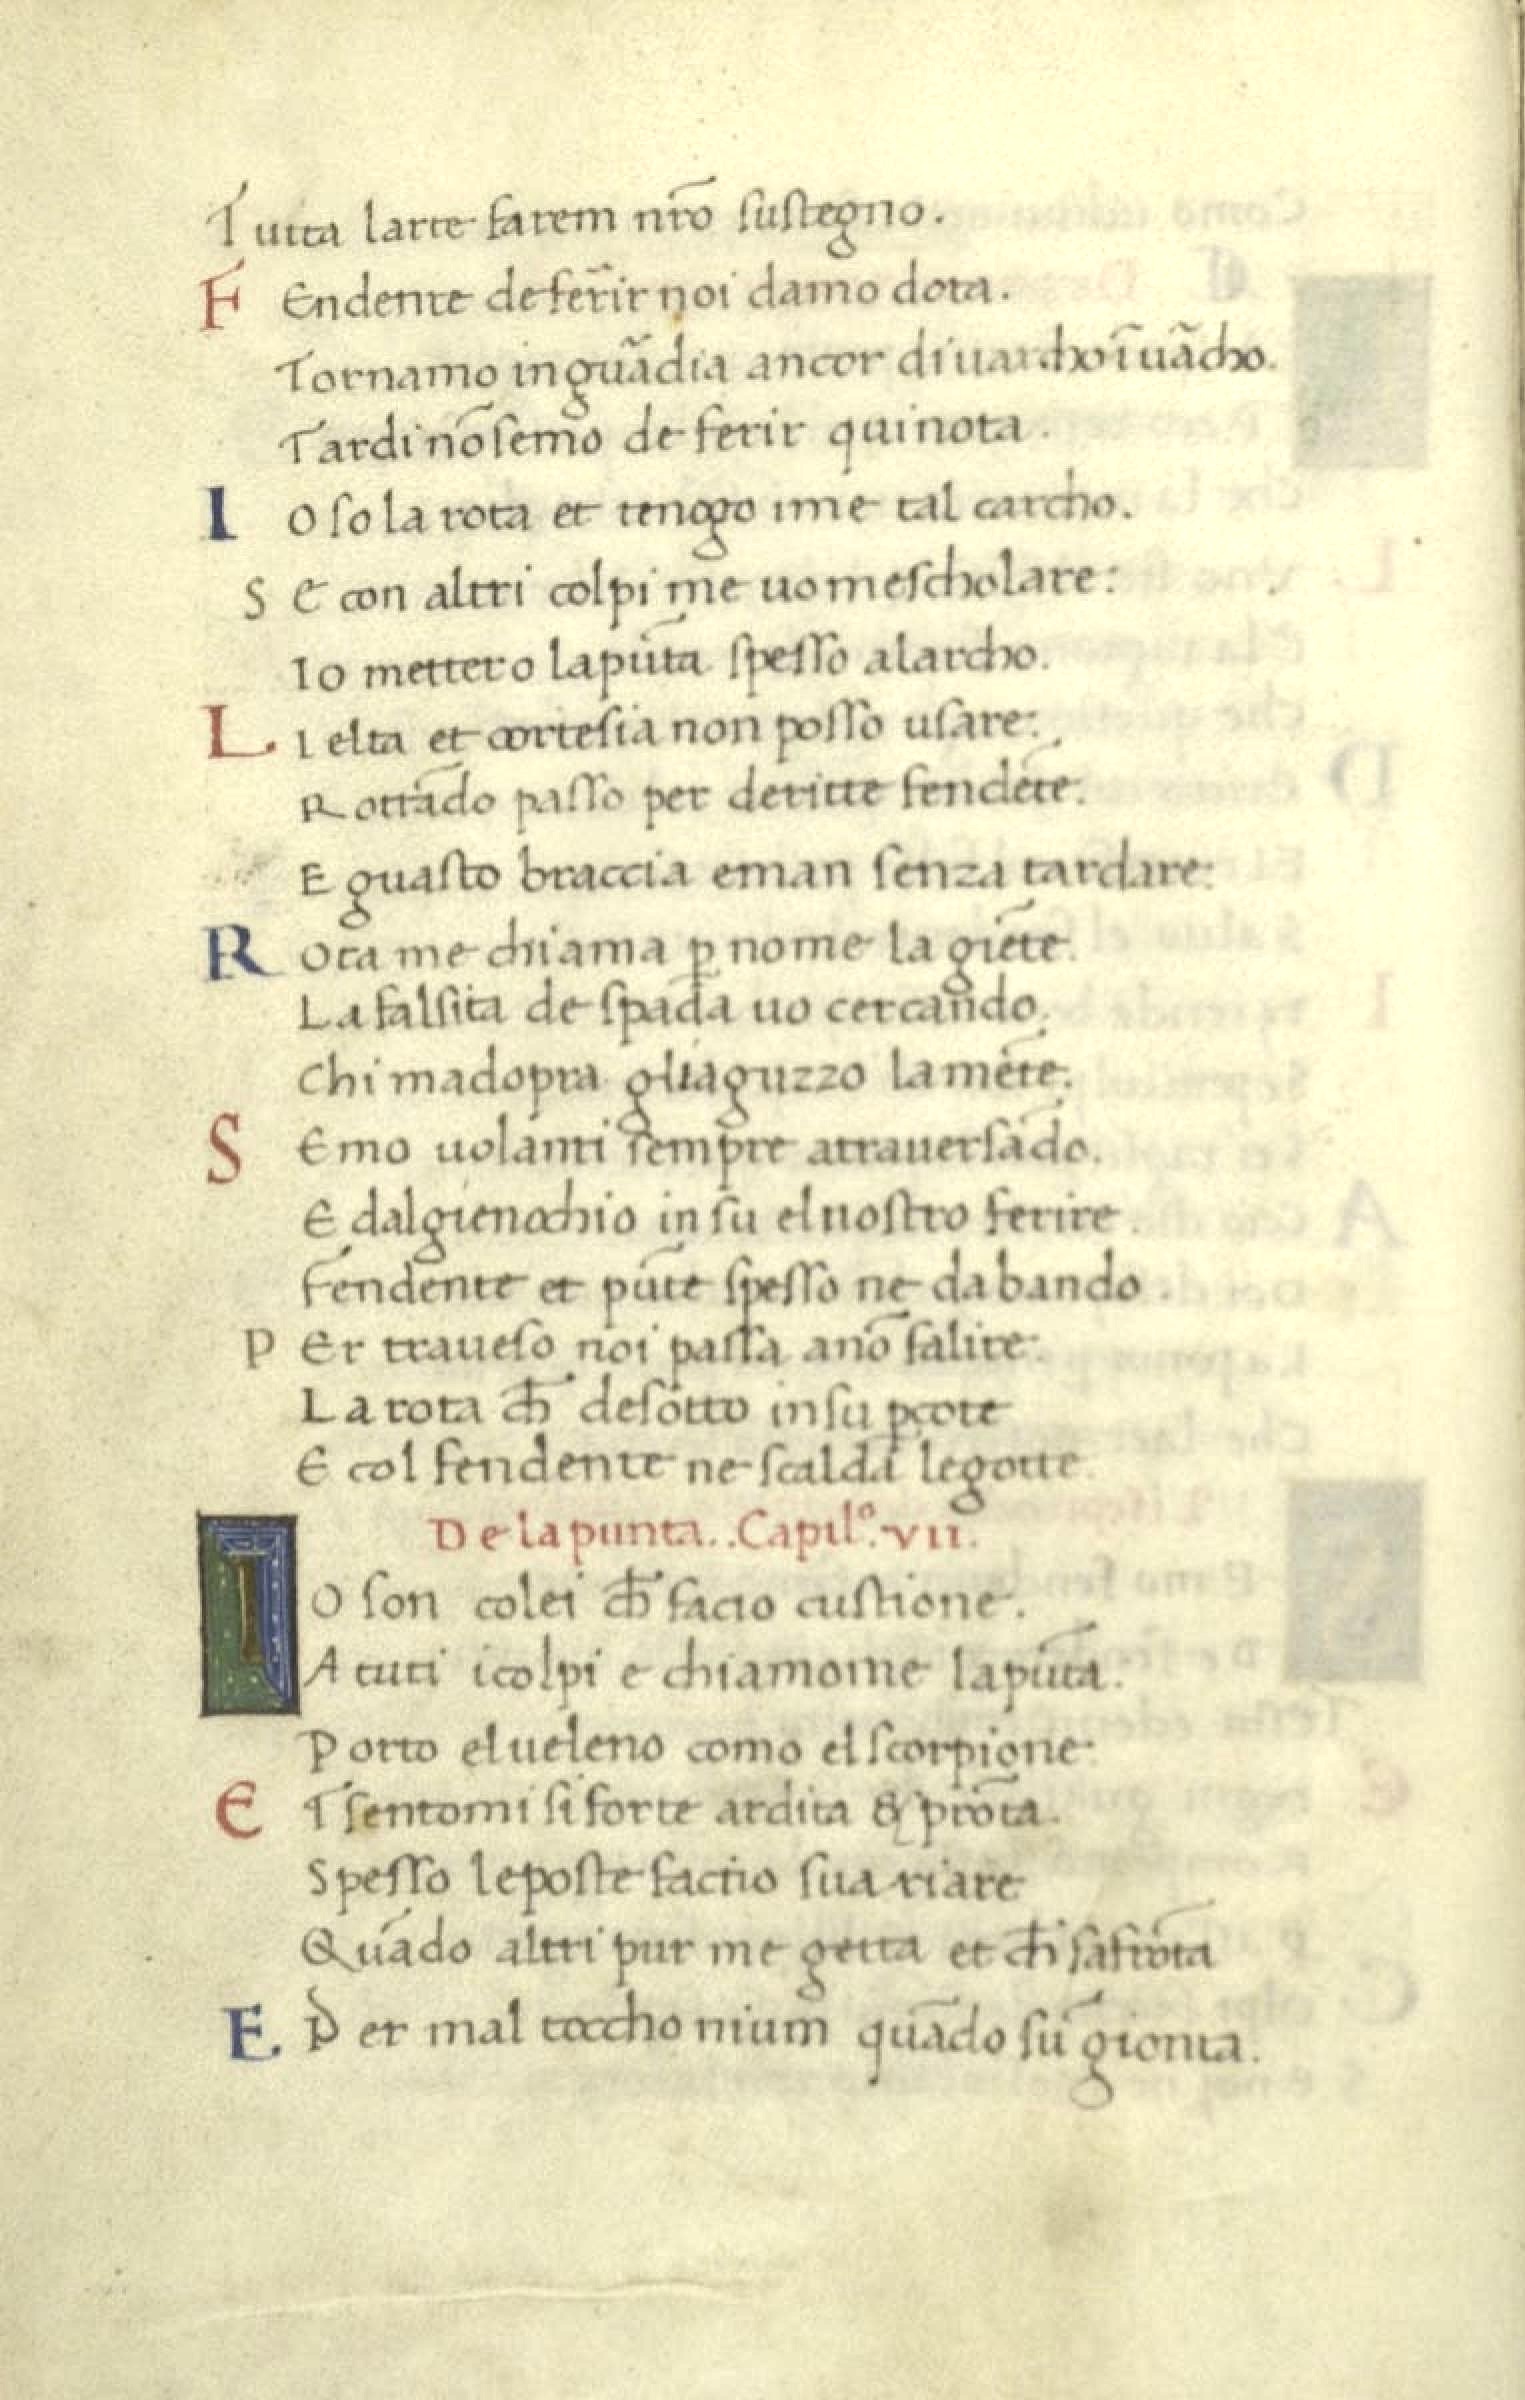 Tutta larte farem nr̄o suſtegno.
F Endente de fer̄ir noi damo dota.
Tornamo in guādia ancor di uarcho ī uācho.
Tardi nō ſemo de ferir qui nota.
I O ſo la rota et tengo ime tal carcho.
S E con altri colpi me uo meſcholare:
Io mettero la pūta ſpeſſo alarcho.
L I elta et corteſia non poſſo uſare:
Rottādo paſſo per deritte fendēte:
E guaſto braccia e man ſenza tardare:
R Ota me chiama ꝑ nome la giēte:
La falſita de ſpada uo cercando.
Chi madopra gli aguzzo la mēte:
S Emo uolanti ſempre atrauerſādo.
E dal gienochio in ſu el noſtro ferire.
Fendente et pūte ſpeſſo ne da bando.
P Er traueſo noi paſſa anō falire:
La rota ch̄ deſotto in ſu ꝑcote
E col fendente ne ſcalda le gotte.
De la punta..Capilº.VII.
I O ſon colei ch̄ facio cuſtione.
A tuti i colpi e chiamome la pūta.
Porto el ueleno como el ſcorpione:
E T ſentomi ſi forte ardita & prōta.
Speſſo le poſte factio ſua riare
Quādo altri pur me getta et ch̄i ſafrōta
E P er mal toccho nium quādo ſu giōnta.